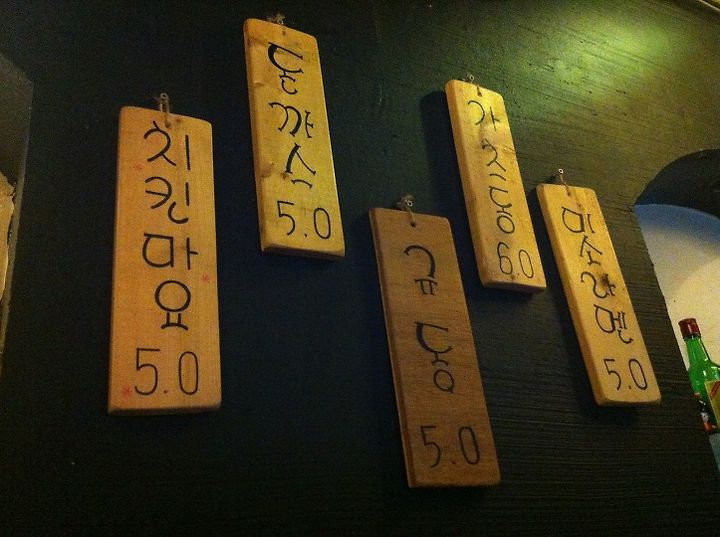 치킨마요
5.0
돈까스
5.0
규동
5.0
가츠동
6.0
미소라멘
5.0